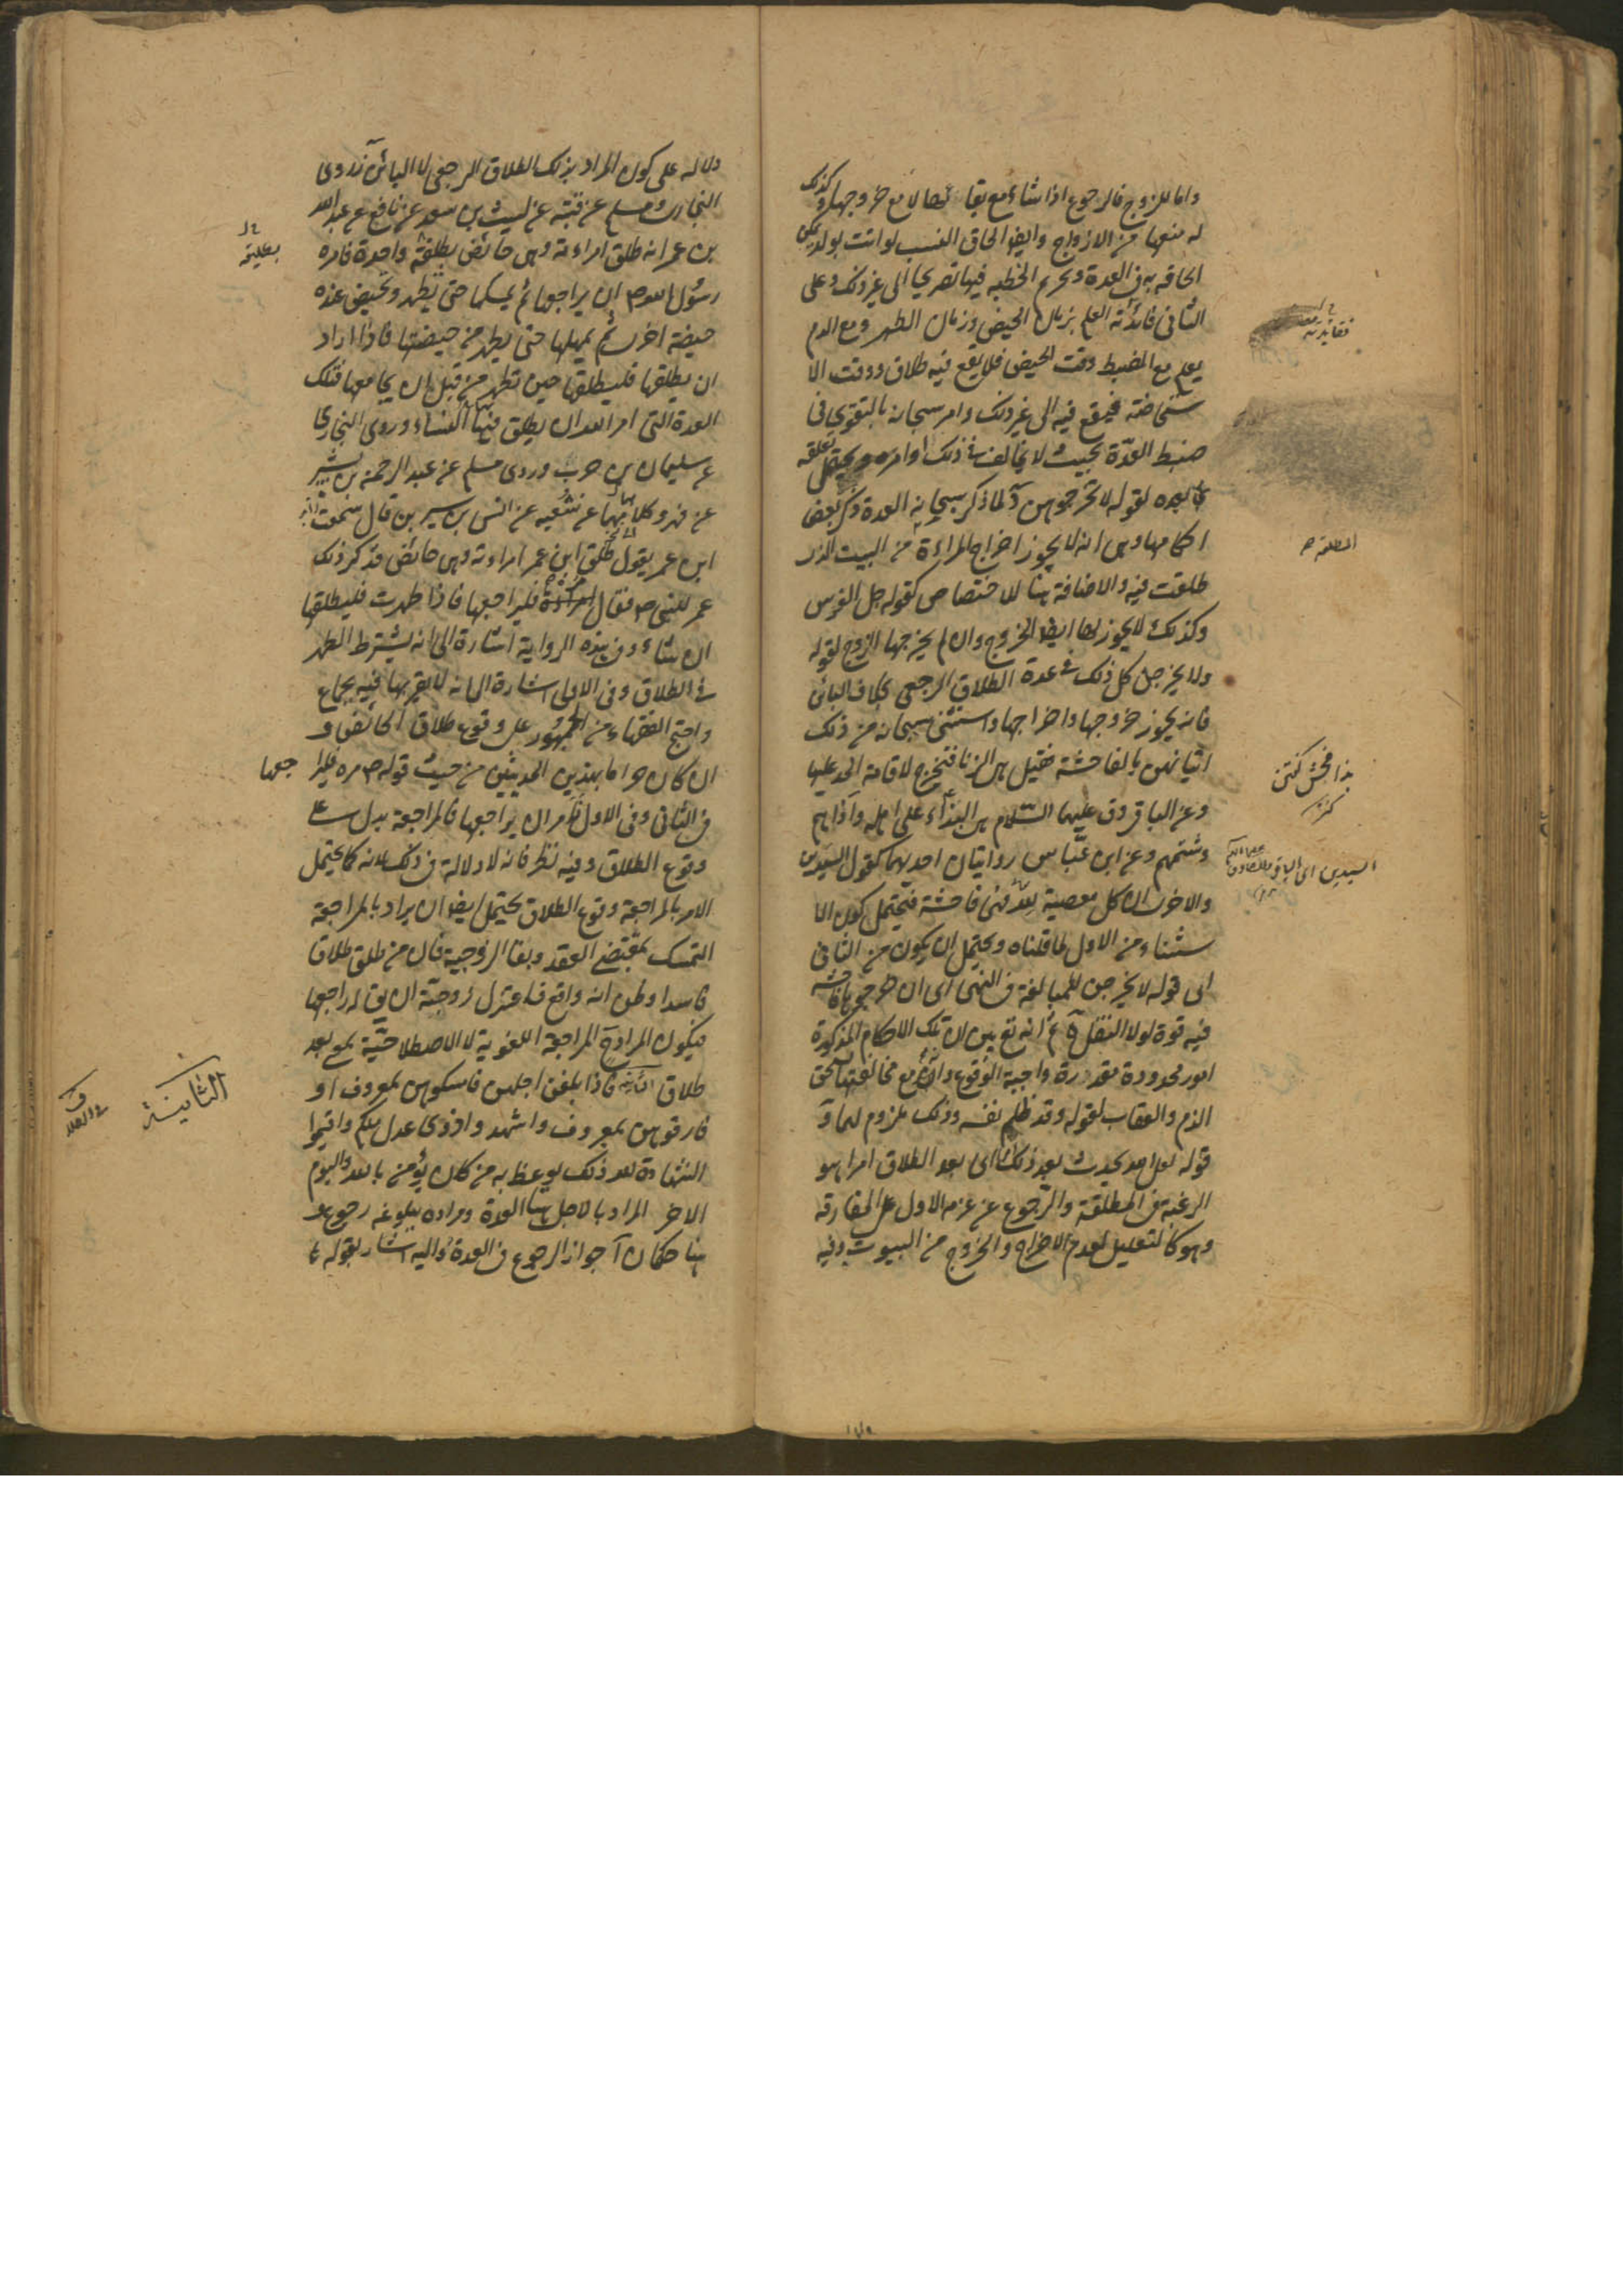 واما للزوج فالرجوع اذا شاء مع بقائها لا مع خروجها وكذلك
له منعها من الازواج وايضا الحاق النسب لو اتت بولد يمكن
الحاقه به في العدة وتحريم الخطبه فيها تصريحا الى غير ذلك وعلى
الثاني فائدته العلم بزمان الحيض وزمان الطهر ومع الدم
يعلم مع الضبط وقت الحيض فلا يقع فيه طلاق ووقت الا
ستحاضة فيقع فيه الى غير ذلك وامر سبحانه بالتقوى في
ضبط العدّة بحيث لا يخالف في ذلك اوامره ويحتمل تعلقه
بما بعده لقوله لا تخرجوهن آ لما ذكر سبحانه العدة ذكر بعض
احكامها وهى انه لا يجوز اخراج المراءة من البيت الذى
طلقت فيه والاضافة هنا للاختصاص كقوله جل الفرس
وكذلك لا يجوز لها ايضا الخروج وان لم يخرجها الزوج لقوله
ولا يخرجن كل ذلك في عدة الطلاق الرجعى بخلاف البائن
فانه يجوز خروجها واخراجها واستثنى سبحانه من ذلك
اتيانهن بالفاحشة فقيل هى الزنا فتخرج لاقامة الحد عليها
وعن الباقر وق عليهما السّلام هى البذاء على اهله وآذاهم
وشتمهم وعن ابن عبّاس روايتان احديهما كقول السيدين
والاخرى ان كل معصية لله فهى فاحشة فيحتمل كون الا
ستثناء من الاول لما قلناه ويحتمل ان يكون من الثانى
اى قوله لا يخرجن للمبالغة في النهى اى ان خروجها فاحشة
فيه قوة لولا النقل ثم انه تع بين ان تلك الاحكام المذكورة
امور محدودة مقدرة واجبة الوقوع وانه مع مخالفتها يستحق
الذم والعقاب لقوله وقد ظلم نفسه وذلك ملزوم لهما و
قوله لعل الله يحدث بعد ذلك اى بعد الطلاق امرا هو
الرغبة في المطلقة والرّجوع عن عزمه الاول على المفارقة
وهو كالتعليل لعدم الاخراج والخروج من البيوت وفيه
المطلقة
هذا فحش كفتن
السيدين اى الباقر والصادق
دلالة على كون المراد بذلك الطلاق الرجعى لا البائن آ روى
البخارى ومسلم عن قتيبة عن ليث بن سعد عن نافع عن عبد الله
بن عمر انه طلق امراءته وهى حائض تطليقة واحدة فامره
رسول الله ص ان يراجعها ثم يمسكها حتى تطهر وتحيض عنده
حيضة اخرى ثم يمهلها حتى يطهر من حيضتها فاذا اراد
ان يطلقها فليطلقها حين تطهر من قبل ان يجامعها فتلك
العدة التى امر الله ان يطلق فيها النساء وروى البخارى
عن سليمان بن حرب وروى مسلم عن عبد الرحمن بن بشر
عن بهز وكلاهما عن شعبه عن انس بن سيرين قال سمعت
ابن عمر يقول طلق ابن عمر امراءته وهى حائض فذكر ذلك
عمر للنبى ص فقال مره فليراجعها فاذا طهرت فليطلقها
ان شاء وفى هذه الرواية اشارة الى انه يشترط الطهر
في الطلاق وفى الاولى اشارة الى انه لا يقربها فيه بجماع
واحتج الفقهاء من الجمهور على وقوع طلاق الحائض و
ان كان حراما بهذين الحديثين من حيث قوله ص مره فليراجعها
في الثانى وفى الاول فامر ان يراجعها فالمراجعة يدل على
وقوع الطلاق وفيه نظر فانه لا دلالة في ذلك لانه كما يحتمل
الامر بالمراجعة وقوع الطلاق يحتمل ايضا ان يراد بالمراجعة
التمسك بمقتضى العقد وبقا الزوجية فان من طلق طلاقا
فاسدا وظن انه واقع فاعتزل زوجته ان يق له راجعها
فيكون المراد المراجعة اللغوية لا الاصطلاحيّة بمع بعد
طلاق الثانية فاذا بلغن اجلهن فامسكوهن بمعروف او
فارقوهن بمعروف واشهدوا ذوى عدل منكم واقيموا
الشهادة لله ذلك يوعظ به من كان يؤمن بالله واليوم
الاخر المراد بالاجل هنا العدة ومراده ببلوغه
هنا حكمان آ جواز الرجوع في العدة واليه اشار بقوله
الثانية